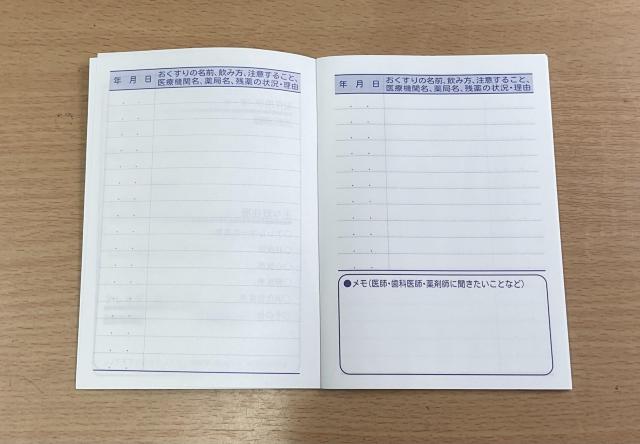 年 月 日
おくすりの名前、飲み方、注意すること、
医療機関名、薬局名、残薬の状況・理由
年 月 日
おくすりの名前、飲み方、注意すること、
医療機関名、薬局名、残薬の状況・理由
●メモ(医師・歯科医師・薬剤師に聞きたいことなど)